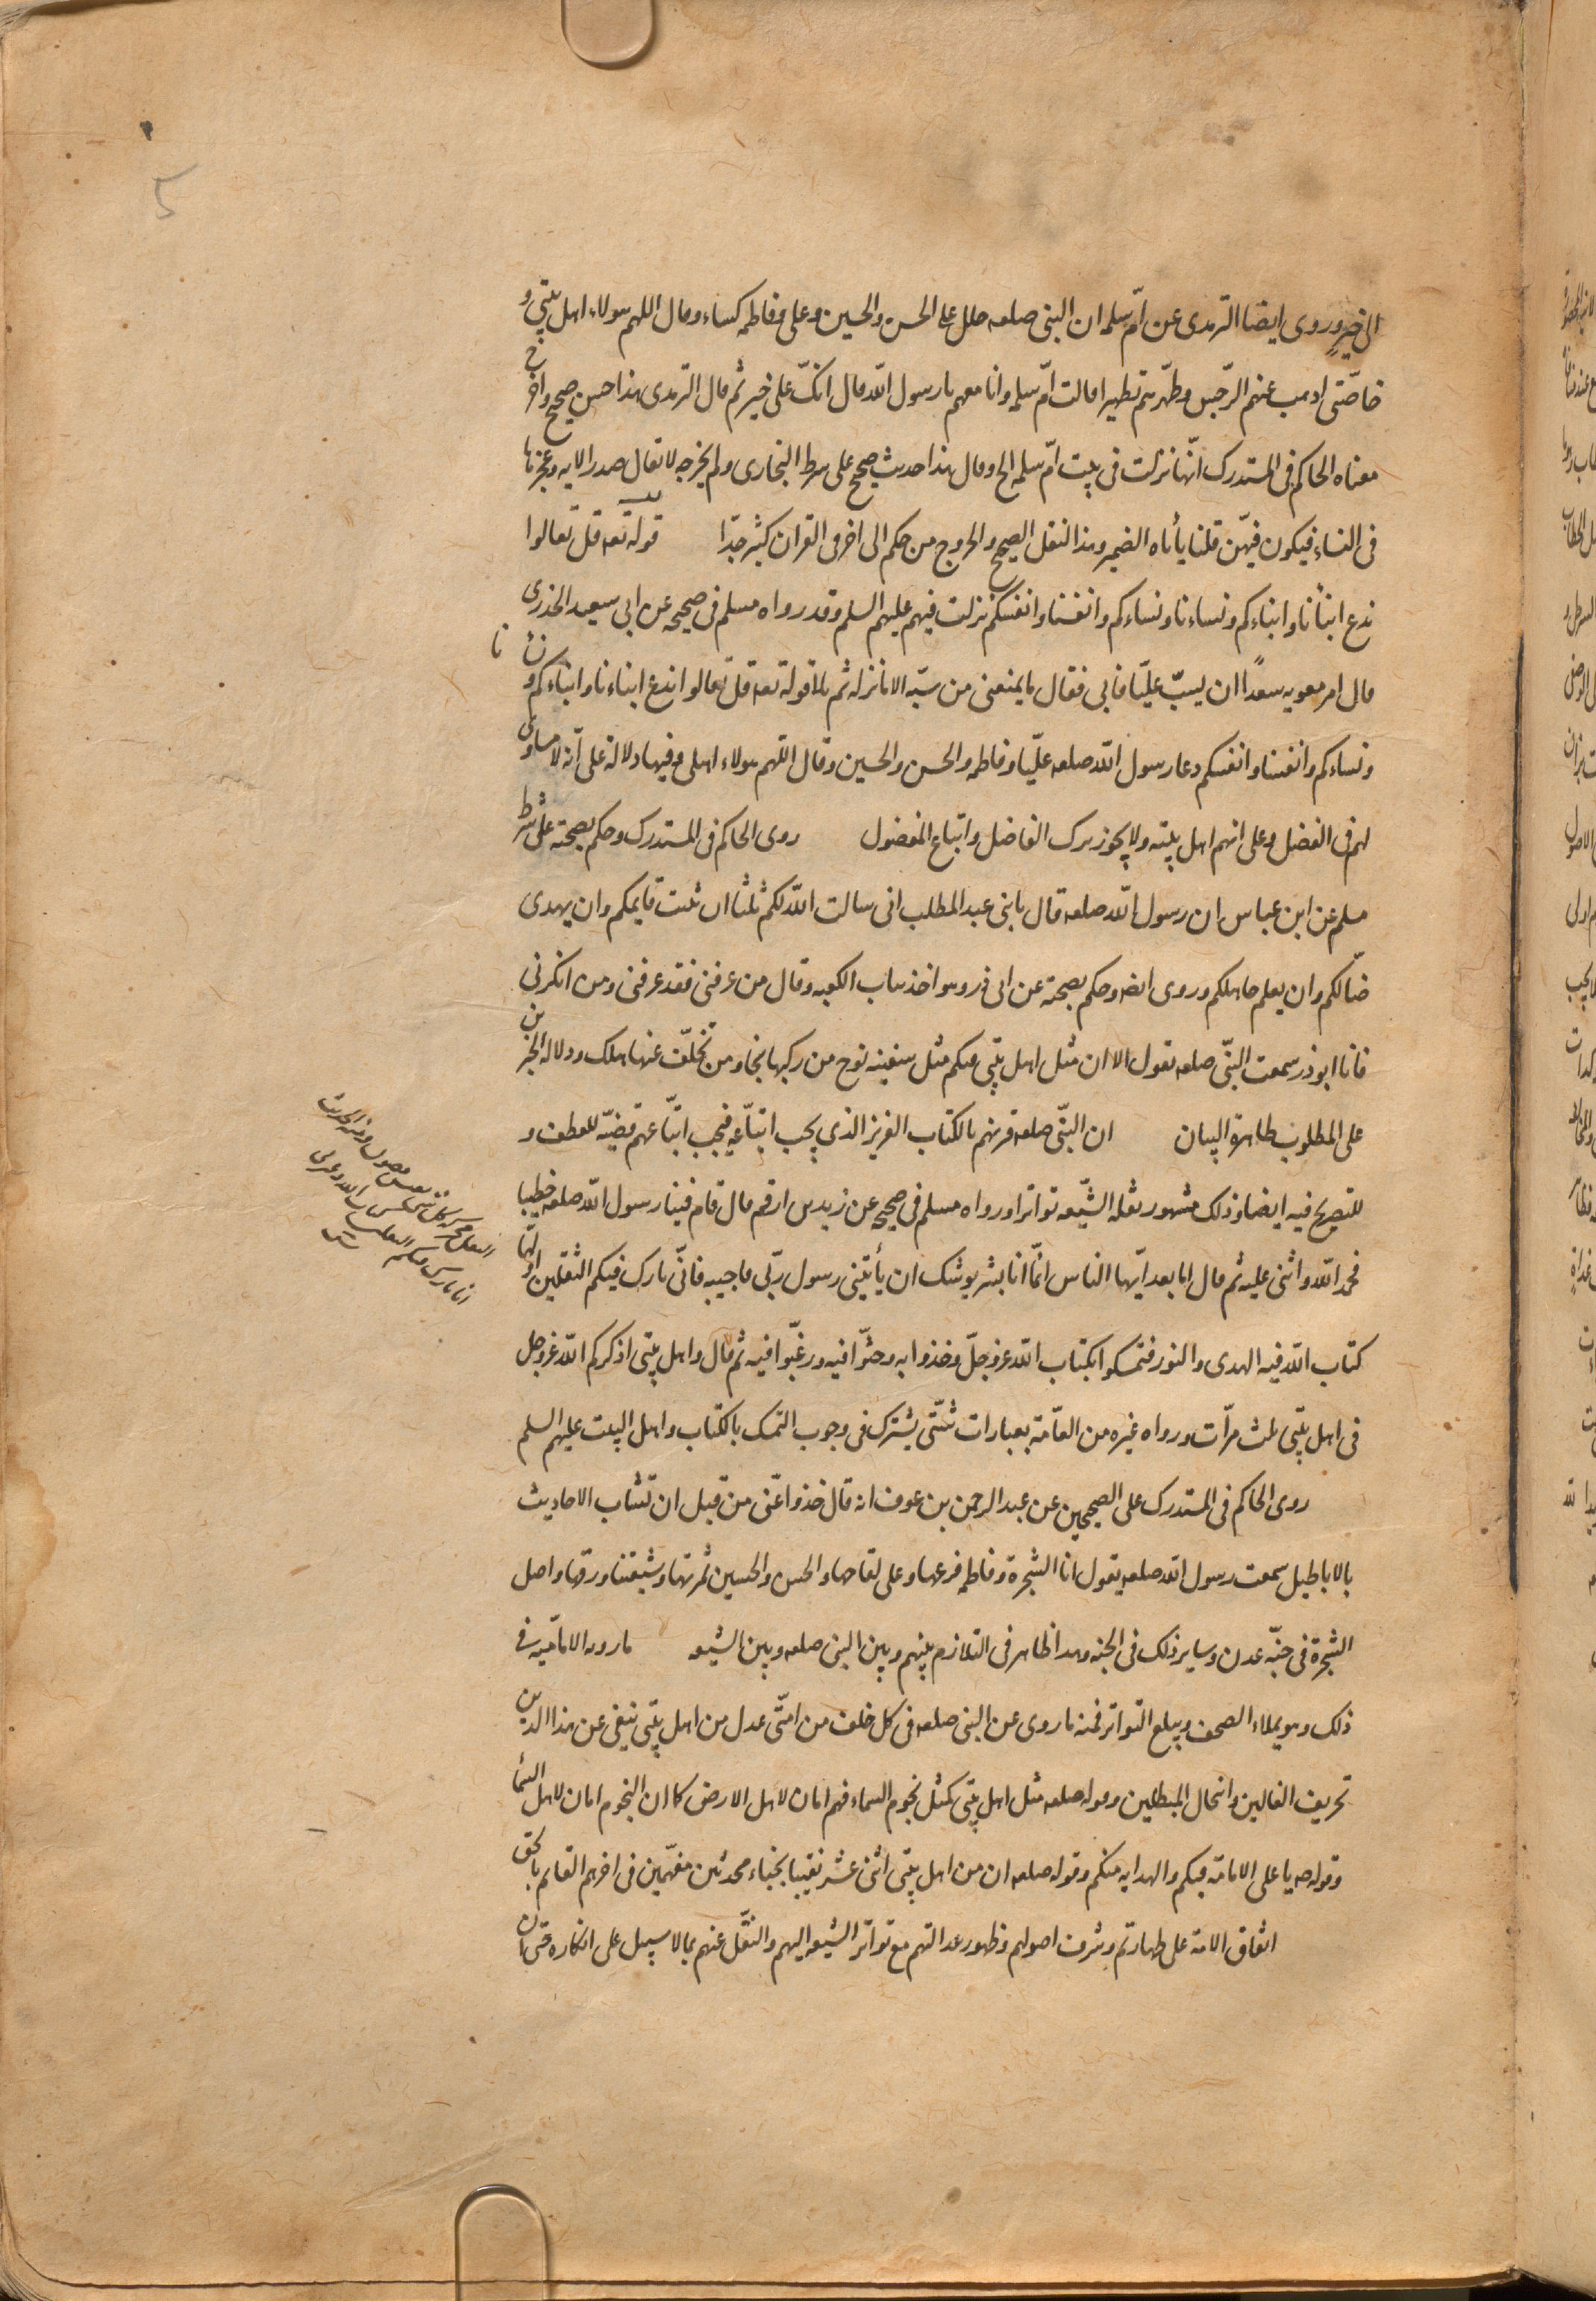 الى خير وروى ايضا الترمدى عن امّ سلمه ان النبى صلعم جلل على الحسن والحسين وعلى وفاطمه كساء وقال اللهم هولاء اهل بيتى و
خاصّتى اذهب عنهم الرّجس وطهّرهم تطهيرا قالت امّ سلمه وانا معهم يا رسول الله قال انكّ على خير ثم قال الترمدى هذا حسن صحيح واخرج
معناه الحاكم فى المستدرك انّها نزلت فى بيت امّ سلمه الخ وقال هذا حديث صحيح على شرط البخارى ولم يخرجه لا يقال صدر الايه وعجزها
فى النساء فيكون فيهنّ قلنا يأباه الضمير وهذا النقل الصحيح والخروج من حكم الى اخر فى القران كثير جدّا قوله تعه قل تعالوا
ندع ابنأنا وابناءكم ونساءنا ونساءكم وانفسنا وانفسكم نزلت فيهم عليهم السلم وقد رواه مسلم فى صحيحه عن ابى سعيد الخدرى
قال امر معويه سعدًا ان يسبّ عليّا فابى فقال ما يمنعنى من سبّه الا ما نزله ثم تلا قوله تعه قل تعالوا ندع ابناءنا وابناءكم و
ونساءكم وانفسنا وانفسكم دعا رسول الله صلعم عليّا وفاطمه والحسن والحسين وقال اللهم هولاء اهلى وفيها دلالة على أنه لا مساوى
لهم فى الفضل وعلى انهم اهل بيته ولا يجوز ترك الفاضل واتباع المفضول روى الحاكم فى المستدرك وحكم بصحته على شرط
مسلم عن ابن عباس ان رسول الله صلعم قال يا بنى عبد المطلب انى سالت الله لكم ثلثا ان يثبت قايمكم وان يهدى
ضالّكم وان يعلم جاهلكم وروى ايضا وحكم بصحته عن ابى ذر وهو اخذ بباب الكعبه وقال من عرفنى فقد عرفنى ومن انكرنى
فانا ابوذر سمعت النبّى صلعم يقول الا ان مثل اهل بيتى فيكم مثل سفينه نوح من ركبها نجا ومن تخلّف عنها هلك ودلاله الخبرين
على المطلوب ظاهرة البيان ان النبّى صلعم قرنهم بالكتاب العزيز الذى يجب اتبّاعه فيجب اتبّاعهم قضيّة للعطف و
للتصريح فيه ايضا وذلك مشهور نقله الشّيعه تواترا ورواه مسلم فى صحيحه عن زيد بن ارقم قال قام فينا رسول الله صلعم خطيبا
فحمد الله واثنى عليه ثم قال اما بعد ايّها الناس انمّا انا بشر يوشك ان يأتينى رسول ربّى فاجيبه فانّى تارك فيكم الثقلين اوّلهما
كتاب الله فيه الهدى والنور فتمسكوا بكتاب الله عزوجلّ وخذوا به وحثّوا فيه ورغّبوا فيه ثم قال واهل بيتى اذكركم الله عزوجل
فى اهل بيتى ثلث مرّات ورواه غيره من العامّة بعبارات شتّى يشترك فى وجوب التمسك بالكتاب واهل البيت عليهم السلم
روى الحاكم فى المستدرك على الصحيحين عن عبد الرحمن بن عوف انه قال خذوا عنّى من قبل ان تشاب الاحاديث
بالاباطيل سمعت رسول الله صلعم يقول انا الشجرة وفاطمه فرعها وعلى لقاحها والحسن والحسين ثمرتها وشيعتنا ورقها واصل
الشجرة فى جنّه عدن وساير ذلك فى الجنه وهذا ظاهر فى التلازم بينهم وبين النبى صلعم وبين الشيعه ما رواه الاماميّه فى
ذلك وهو يملاء الصحف ويبلغ التواتر فمنه ما روى عن النبى صلعم فى كل خلف من امتّى عدل من اهل بيتى ينفى عن هذا الدين
تحريف الغالين وانتحال المبطلين وقوله صلعم مثل اهل بيتى كمثل نجوم السماء فهم امان لاهل الارض كما ان النجوم امان لاهل السما
وقوله صه يا على الامامة فيكم والهدايه منكم وقوله صلعم ان من اهل بيتى اثنى عشر نقيبا نجباء محدثين مفهّمين فى اخرهم القايم بالحق
اتفاق الامة على طهارتهم وشرف اصولهم وظهور عدالتهم مع تواتر الشيعه اليهم والنقّل عنهم بما لا سبيل على انكاره حتى ان
5